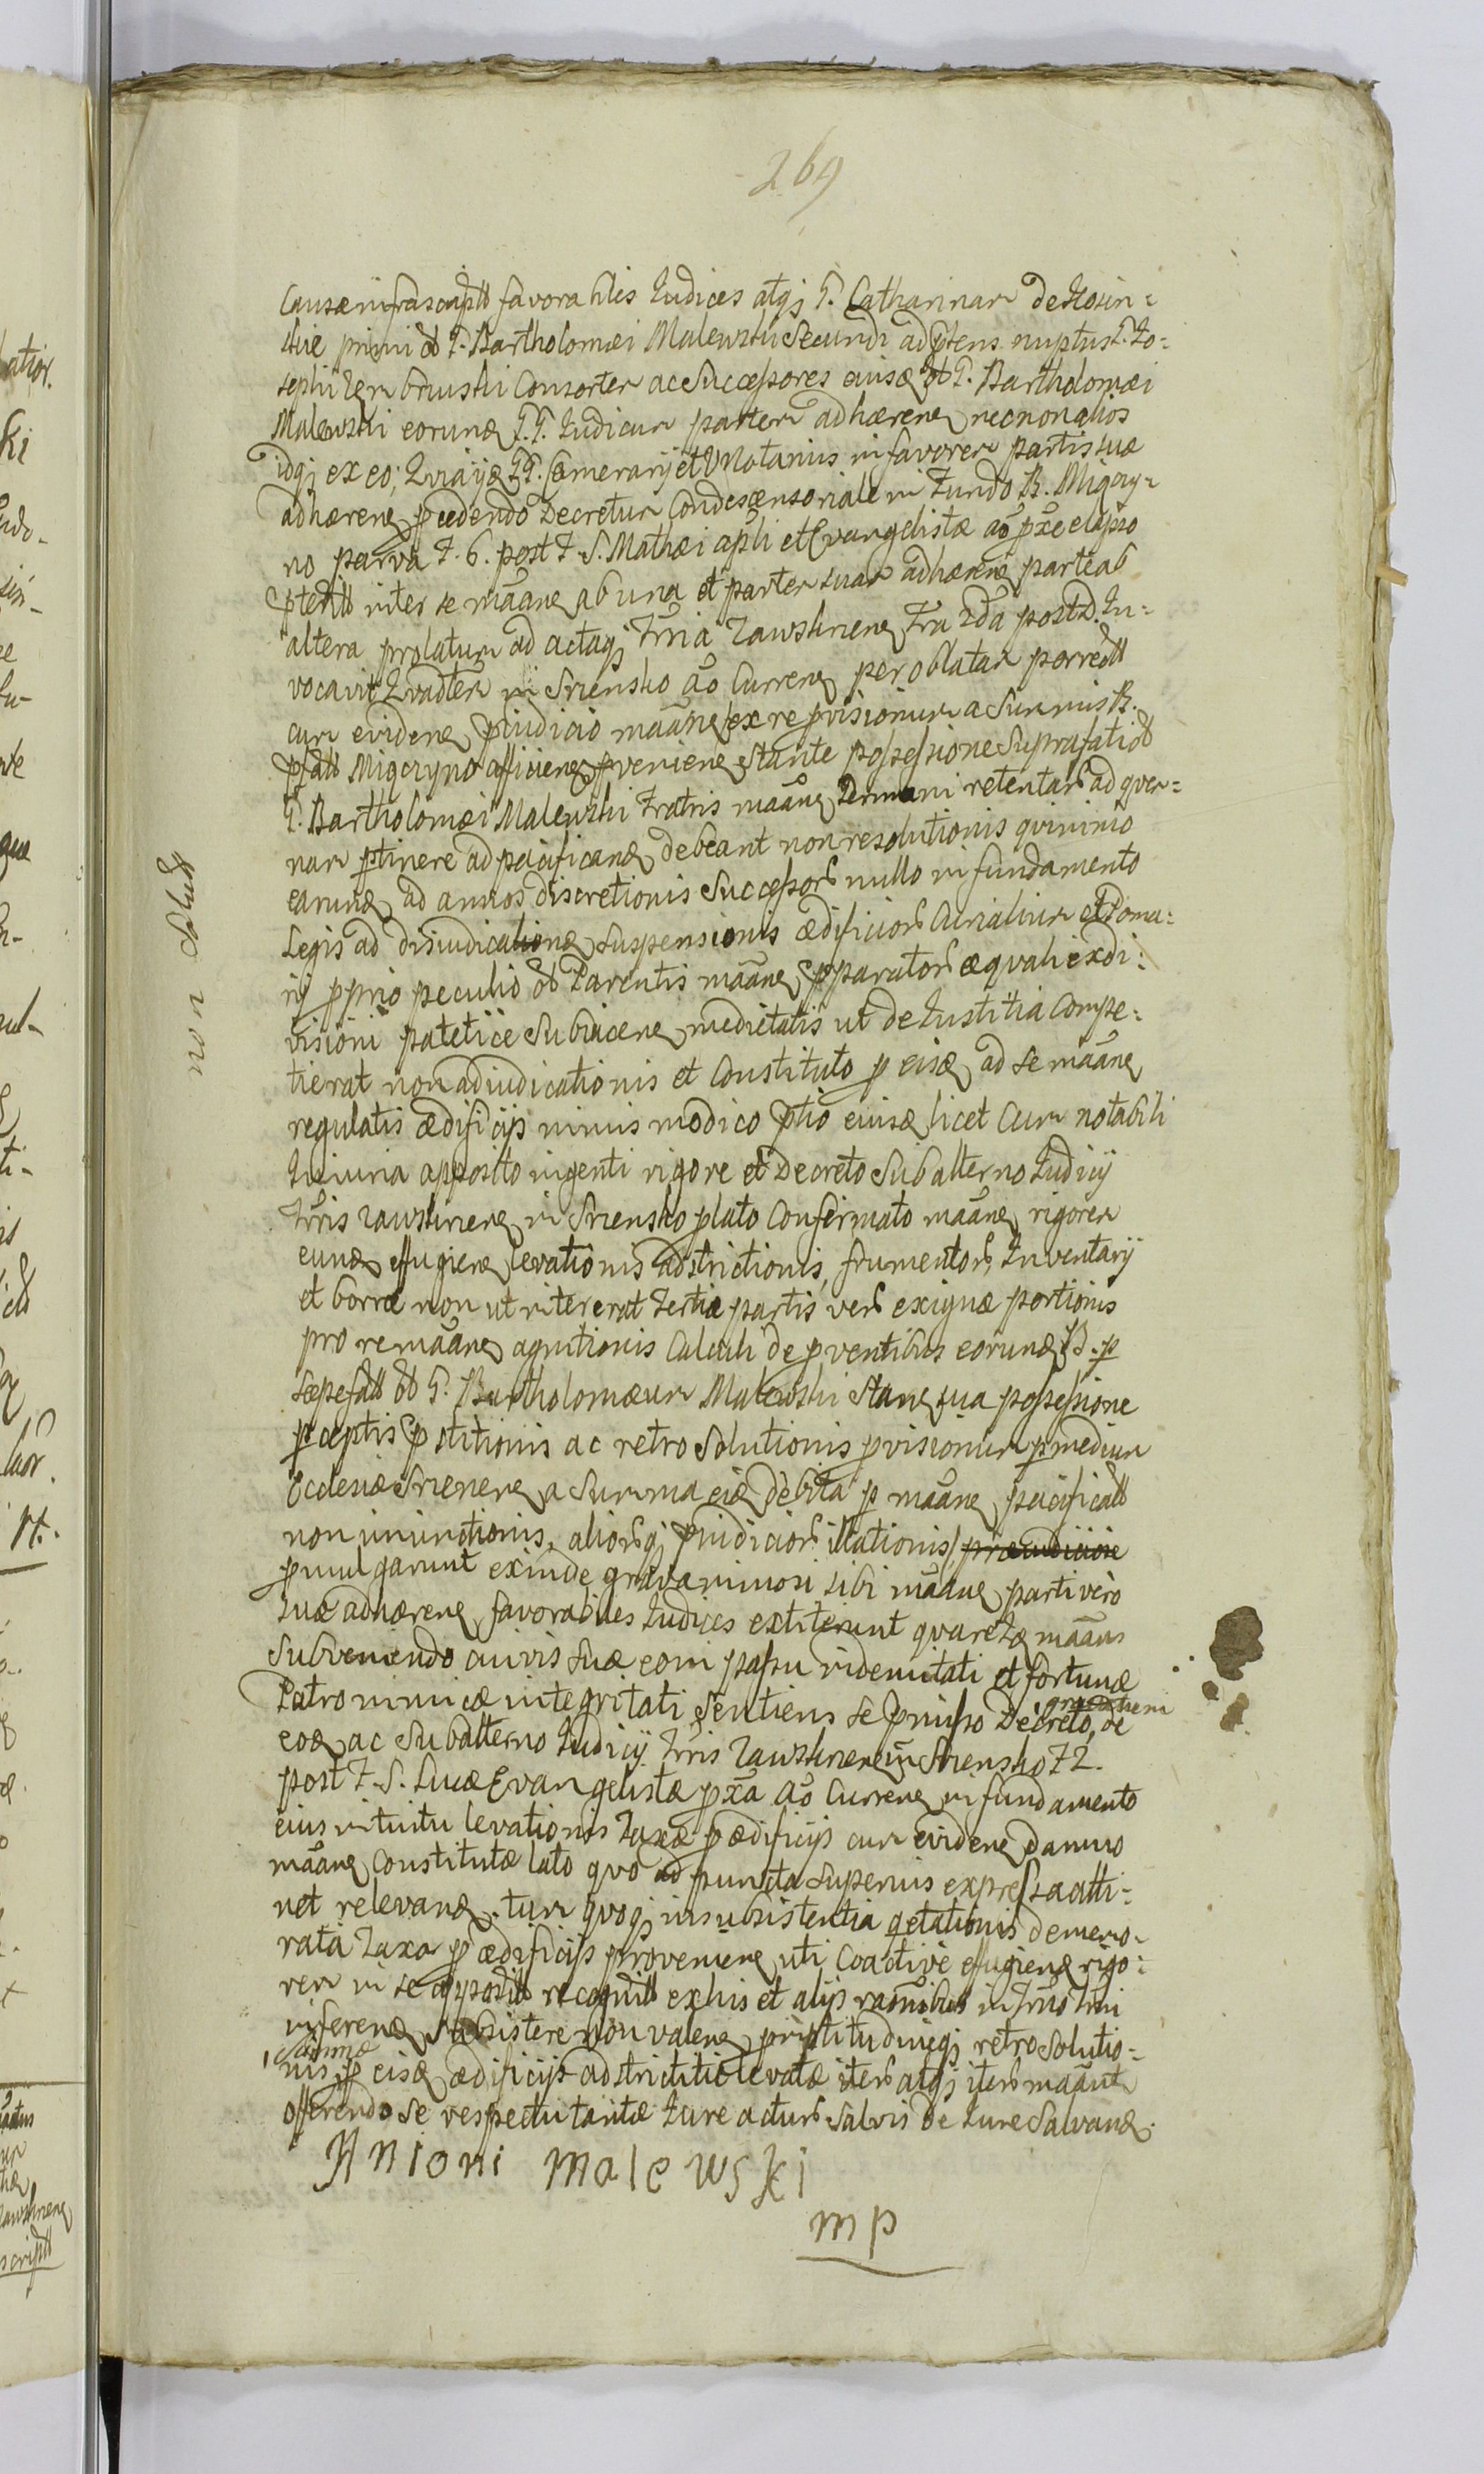 269
Causæ infrascriptæ favorabiles Iudices atq; G. Catharinam de Kosin=
skie primi & G. Bartholomei Malewski Secundi ad ptens. nuptus G. Jo=
sephi Zembrzuski Consortem ac Successores eiusd & G. Bartholomæi
Malewski eorund G.G. Iudicum partem adhæren necnon alios
idq; ex eo; Qvia ijd GG. Camerarij et VNotarius in favorem partis suæ
adhæren pcedendo Decretum Condescensoriale in Fundo B. Migory=
no parva F. 6. post F. S. Mathæi apli et Evangelistæ ao pxe elapso
inter se mããne ab una et partem suam adhæren parte ab
altera prolatum ad actaq; Trria Zawskrnene Fra 2da post D. In=
vocavit Qvadtem in Sriensko ao Curren per oblatam porrectt
cum eviden pjudicio mããne ex re pvisionum a Summis B.
pfatt Migoryno afficien pvenien stante possessione Suprafati &
G. Bartholomæi Malewski Fratris mããne Germani retentar ad qvem=
nam ptinere ad pacificand debeant non resolutionis qvinimo
earund ad annos discretionis Successor nullo in fundamento
Legis ad disiudicationd suspensionis ædificior Curialium et Poma=
rij pprio peculio & Parentis mããne pparator æqvali exdi=
visioni patetice Subiacen medietatis ut de Iustitia Compe=
tierat non adiudicationis et Constituto p eisd ad se mããne
regulatis ædificijs nimis modico ptio eiusd licet Cum notabili
Iniuria apposito ingenti rigore et Decreto Subalterno Iudicij
Trris Zawskrnene in Sriensko plato Confirmato mããne rigorem
eund effugien levationis adstrictionis, frumentor, Inventarij
et borræ non ut intererat tertiæ partis ver exiguæ portionis
pro re mããne agnitionis Calculi de pventibus eorund B. p
sæpefatt & G. Bartholomæum Malewski Stan sua possessione
pceptis pstitionis ac retro Solutionis pvisionum p medium
Ecclesiæ Srienen a Summa eid debita p mããne pacificatt
non iniunctionis, aliorq; pjudicior illationis, præiudicior
pmulgarunt exinde gravaminosi sibi mããne parti vero
suæ adhæren favorabiles Iudices extiterunt qvare Id mããns
Subveniendo cuivis suæ eoin passu indemnitati et fortunæ
Patronimicæ integritati sentiens se pmisso Decreto, de
eod ac Subalterno Iudicij Trris Zawskrnene in Sriensko F 2.
post F. S. Lucæ Evangelistæ pxa ao Curren in fundamento
eius intuitu levationis Taxæ p ædificijs cum eviden Damno
mããne Constitutæ lato quo ad puncta superius expressa atti=
net relevand, tum qvoq; insubsistentia qetationis demeno=
rata Taxa p ædificijs provenien uti Coactive effugien rigo=
rem in se appositt recognitt ex his et alijs raonibus in Trno Trri
inferend Subsistere non valen priptitudineq; retro solutio=
nis Summæ p eisd ædificijs adstrictitie levatæ iter atq; iter mããnt
offerendo se respectu tantæ Iure actur Salvis de Iure Salvand.
Antoni Malewski
mp
non Solutt